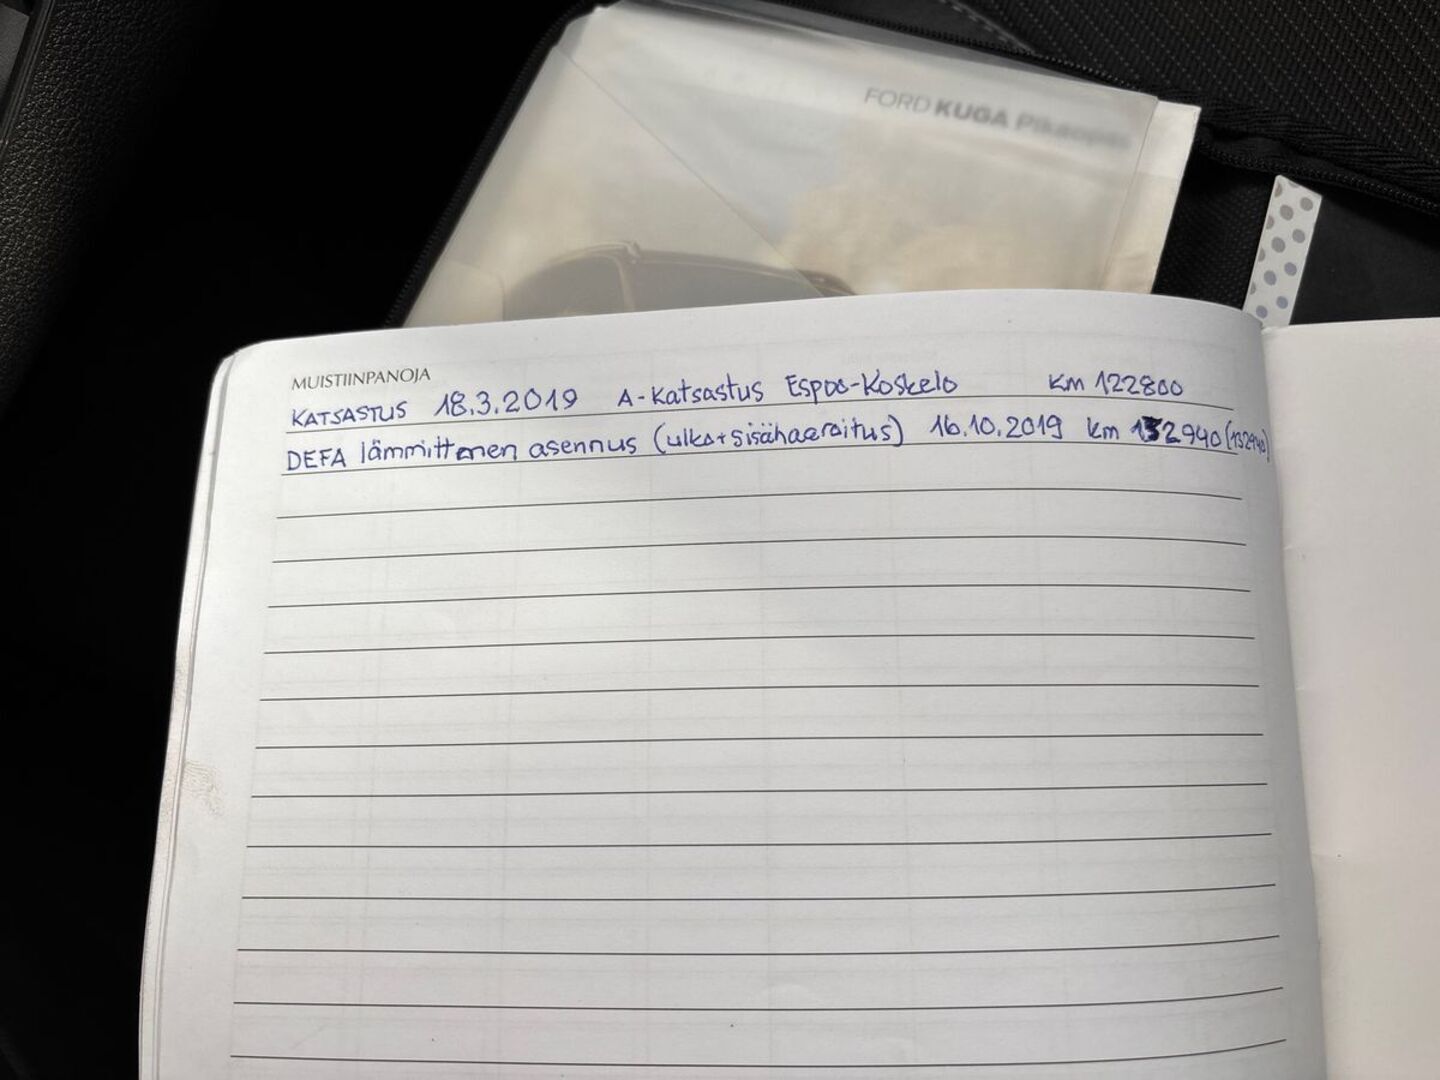 FORD KUGA Pikaopas
MUISTIINPANOJA
KATSASTUS 18.3.2019 A-Katsastus Espoo-Koskelo Km 122800
DEFA lämmittimen asennus (ulko+sisähaaroitus) 16.10.2019 km 132940 (132940)